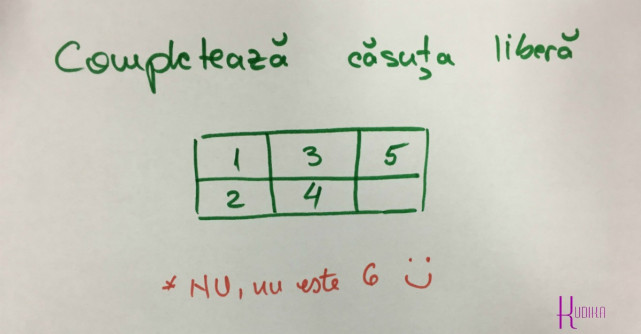 Completează căsuța liberă
1 3 5
2 4
* NU, nu este 6 :)
KUDIKA